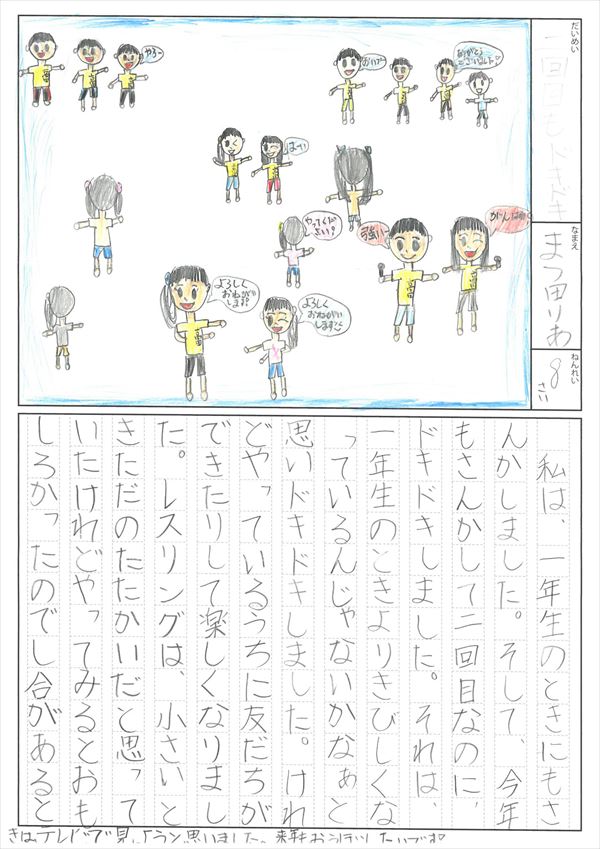 だいめい
二回目もドキドキ
なまえ
まつ田りあ
ねんれい
8さい
やろー
おいでー
ありがとうございました
はーい
やってください。
強い
がんば
よろしくおねがいします
よろしくおねがいします
私は、一年生のときにもさ
んかしました。そして、今年
もさんかして二回目なのに、
ドキドキしました。それは、
一年生のときよりきびしくな
っているんじゃないかなぁと
思いドキドキしました。けれ
どやっているうちに友だちが
できたりして楽しくなりまし
た。レスリングは、小さいと
きただのたたかいだと思って
いたけれどやってみるとおも
しろかったのでし合があると
きは、テレビで見ようと思いました。来年もおうぼしたいです。